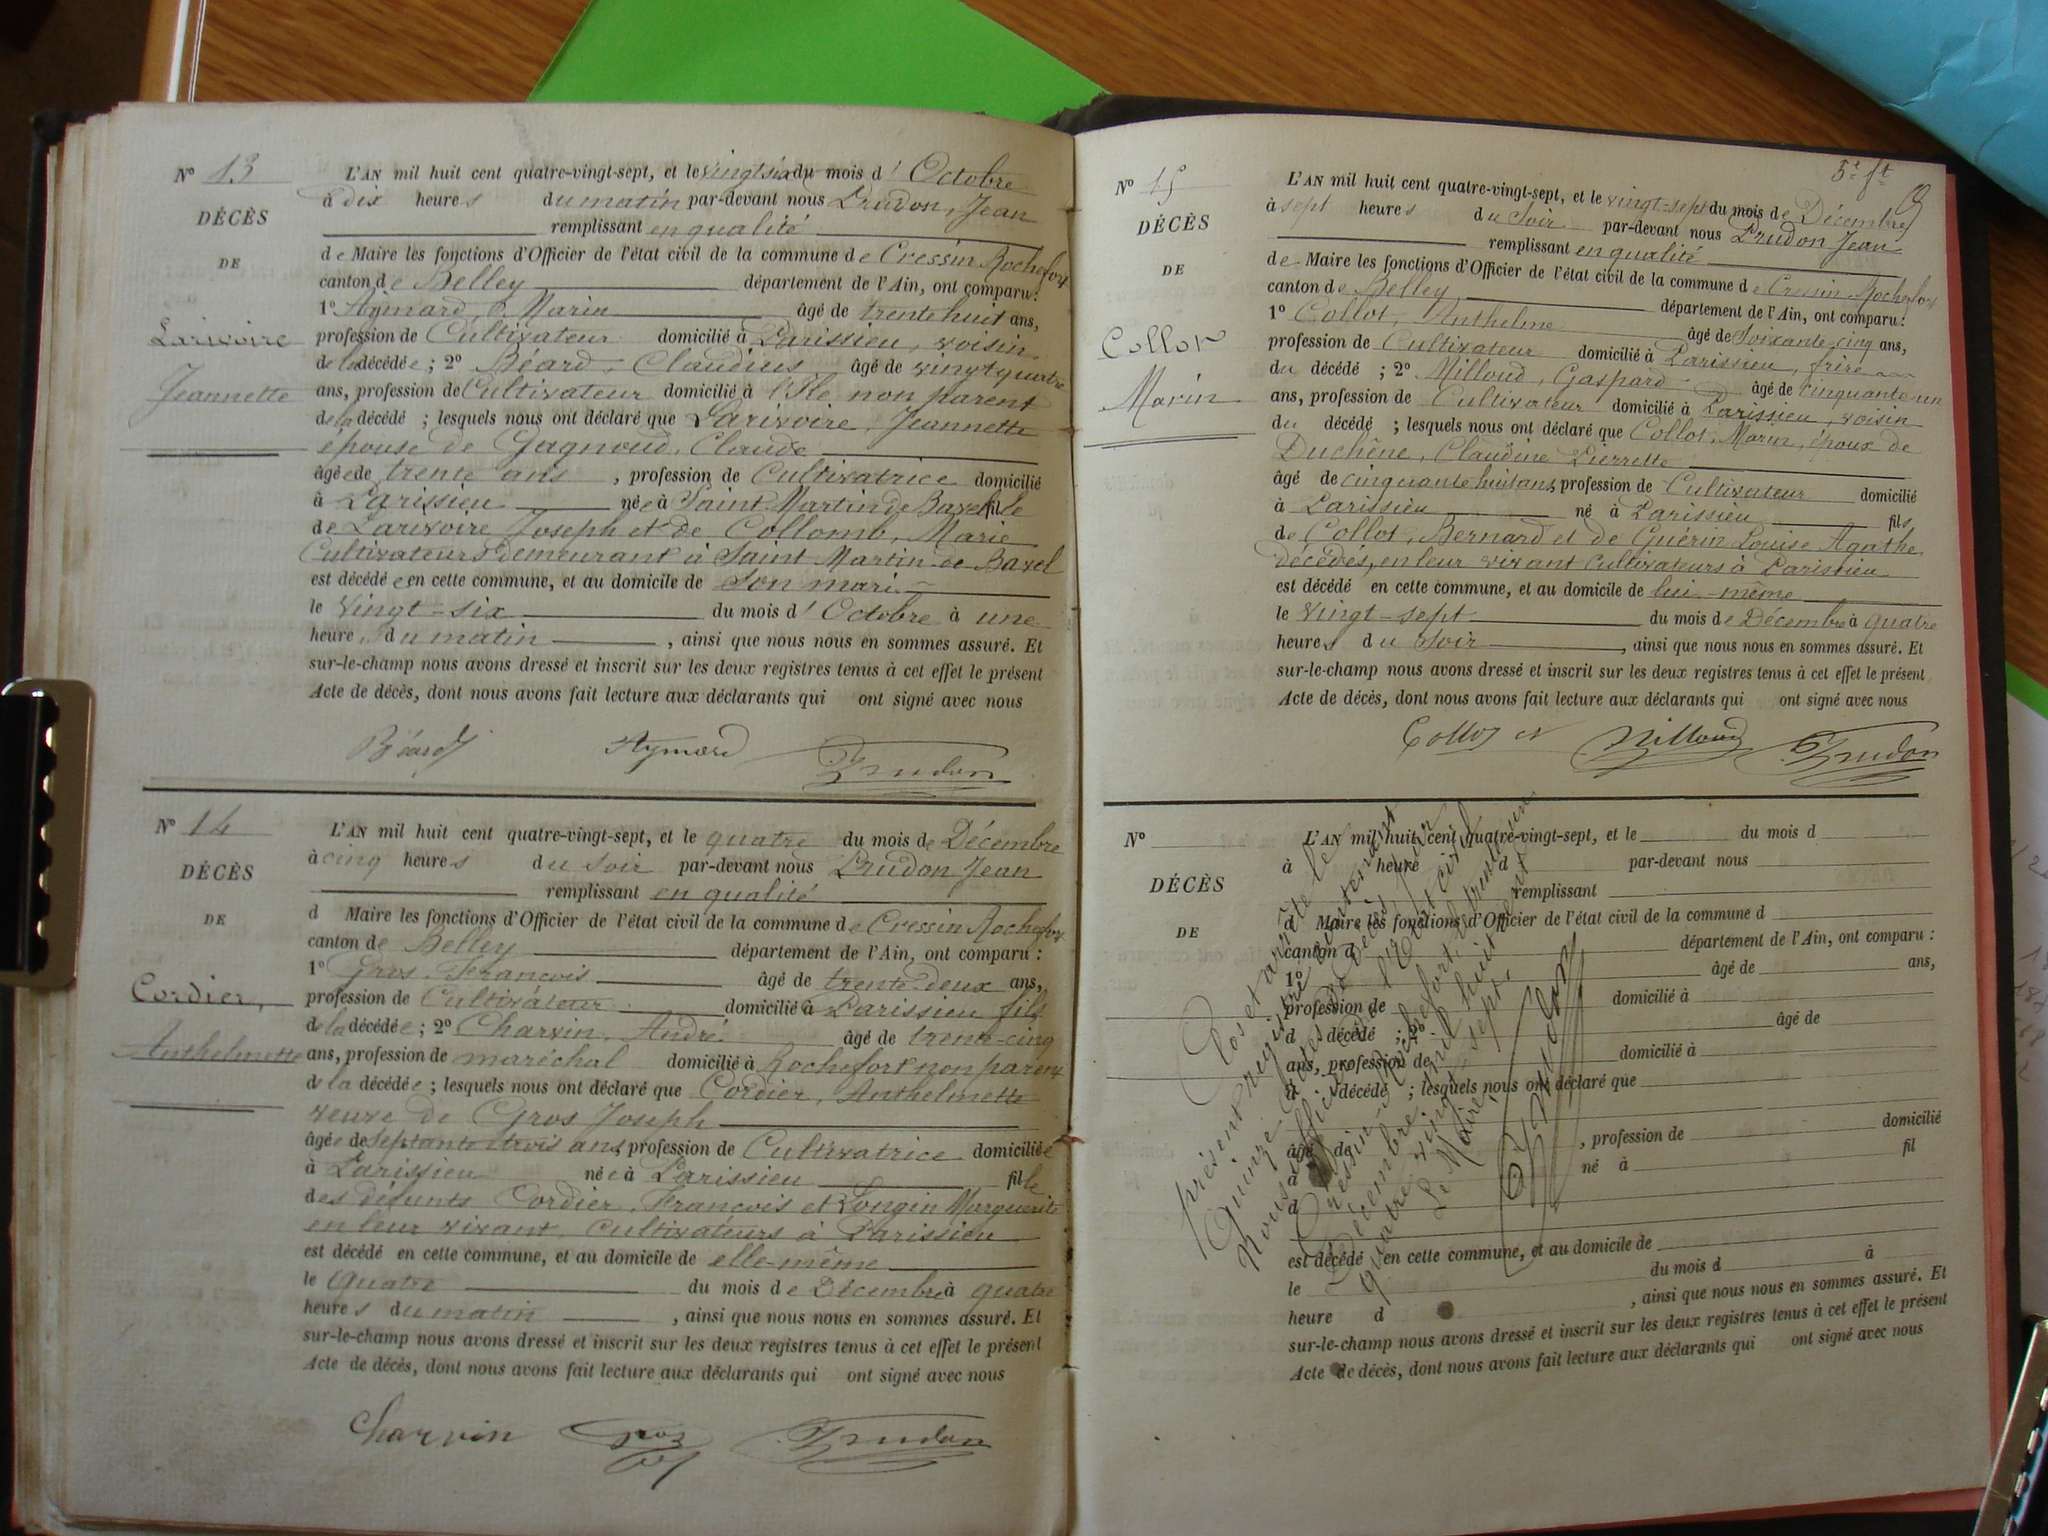 N° 13
DÉCÈS
DE
Larivoire
Jeannette
L'AN mil huit cent quatre-vingt-sept, et le vingt six du mois d'Octobre
à dix heures du matin par-devant nous Prudon, Jean
remplissant en qualité
de Maire les fonctions d'Officier de l'état civil de la commune de Cressin Rochefort
canton de Belley département de l'Ain, ont comparu :
1° Aimard, Marin âgé de trente huit ans,
profession de Cultivateur domicilié à Parissieu, voisin
de la décédée ; 2° Béard, Claudius âgé de vingt quatre
ans, profession de Cultivateur domicilié à l'Ile non parent
de la décédé ; lesquels nous ont déclaré que Larivoire, Jeannette
épouse de Gagnoud, Claude
âgée de trente ans , profession de Cultivatrice domicilié
à Parissieu née à Saint Martin de Bavel fille
de Larivoire Joseph et de Collomb, Marie
Cultivateurs demeurant à Saint Martin de Bavel
est décédée en cette commune, et au domicile de son mari
le vingt-six du mois d'Octobre à une
heure, du matin , ainsi que nous nous en sommes assuré. Et
sur-le-champ nous avons dressé et inscrit sur les deux registres tenus à cet effet le présent
Acte de décès, dont nous avons fait lecture aux déclarants qui ont signé avec nous
Béard Aymard Prudon
N° 14
DÉCÈS
DE
Cordier,
Anthelmette
L'AN mil huit cent quatre-vingt-sept, et le quatre du mois de Décembre
à cinq heures du soir par-devant nous Prudon Jean
remplissant en qualité
d Maire les fonctions d'Officier de l'état civil de la commune de Cressin Rochefort
canton de Belley département de l'Ain, ont comparu :
1° Gros, Francois âgé de trente-deux ans,
profession de Cultivateur domicilié à Parissieu fils
de la décédée ; 2° Charvin, André âgé de trente-cinq
ans, profession de maréchal domicilié à Rochefort non parent
de la décédée ; lesquels nous ont déclaré que Cordier, Anthelmette
veuve de Gros Joseph
âgée de septante trois ans, profession de Cultivatrice domiciliée
à Parissieu née à Parissieu fille
des défunts Cordier, Francois et Longin Marguerite
en leur vivant cultivateurs à Parissieu
est décédé en cette commune, et au domicile de elle-même
le Quatre du mois de Décembre à quatre
heures du matin , ainsi que nous nous en sommes assuré. Et
sur-le-champ nous avons dressé et inscrit sur les deux registres tenus à cet effet le présent
Acte de décès, dont nous avons fait lecture aux déclarants qui ont signé avec nous
Charvin Gros Prudon
N° 15
DÉCÈS
DE
Collot
Marin
L'AN mil huit cent quatre-vingt-sept, et le vingt-sept du mois de Décembre
à sept heures du soir par-devant nous Prudon Jean
remplissant en qualité
de Maire les fonctions d'Officier de l'état civil de la commune de Cressin Rochefort
canton de Belley département de l'Ain, ont comparu :
1° Collot, Anthelme âgé de soixante cinq ans,
profession de Cultivateur domicilié à Parissieu, frère
du décédé ; 2° Milloud, Gaspard âgé de cinquante un
ans, profession de Cultivateur domicilié à Parissieu, voisin
du décédé ; lesquels nous ont déclaré que Collot, Marin, époux de
Duchêne, Claudine Pierrette
âgé de cinquante huit ans, profession de Cultivateur domicilié
à Parissieu né à Parissieu fils
de Collot, Bernard et de Guérin Louise Agathe
décédés, en leur vivant cultivateurs à Parissieu
est décédé en cette commune, et au domicile de lui-même
le vingt-sept du mois de Décembre à quatre
heures du soir , ainsi que nous nous en sommes assuré. Et
sur-le-champ nous avons dressé et inscrit sur les deux registres tenus à cet effet le présent
Acte de décès, dont nous avons fait lecture aux déclarants qui ont signé avec nous
Collot Milloud Prudon
N°
DÉCÈS
DE
L'AN mil huit cent quatre-vingt-sept, et le du mois d
à heure d par-devant nous
remplissant
d Maire les fonctions d'Officier de l'état civil de la commune d
canton d département de l'Ain, ont comparu :
1° âgé de ans,
profession de domicilié à
d décédé ; 2° âgé de
ans, profession de domicilié à
d décédé ; lesquels nous ont déclaré que
âgé de , profession de domicilié
à né à fil
d
est décédé en cette commune, et au domicile de
le du mois d à
heure d , ainsi que nous nous en sommes assuré. Et
sur-le-champ nous avons dressé et inscrit sur les deux registres tenus à cet effet le présent
Acte de décès, dont nous avons fait lecture aux déclarants qui ont signé avec nous
Clos et arrêté le
présent registre contenant
Quinze actes de décès, par
Nous officier de l'Etat civil
Cressin-Rochefort, le trente un
Décembre mil huit cent
quatre vingt sept.
Le Maire,
Prudon